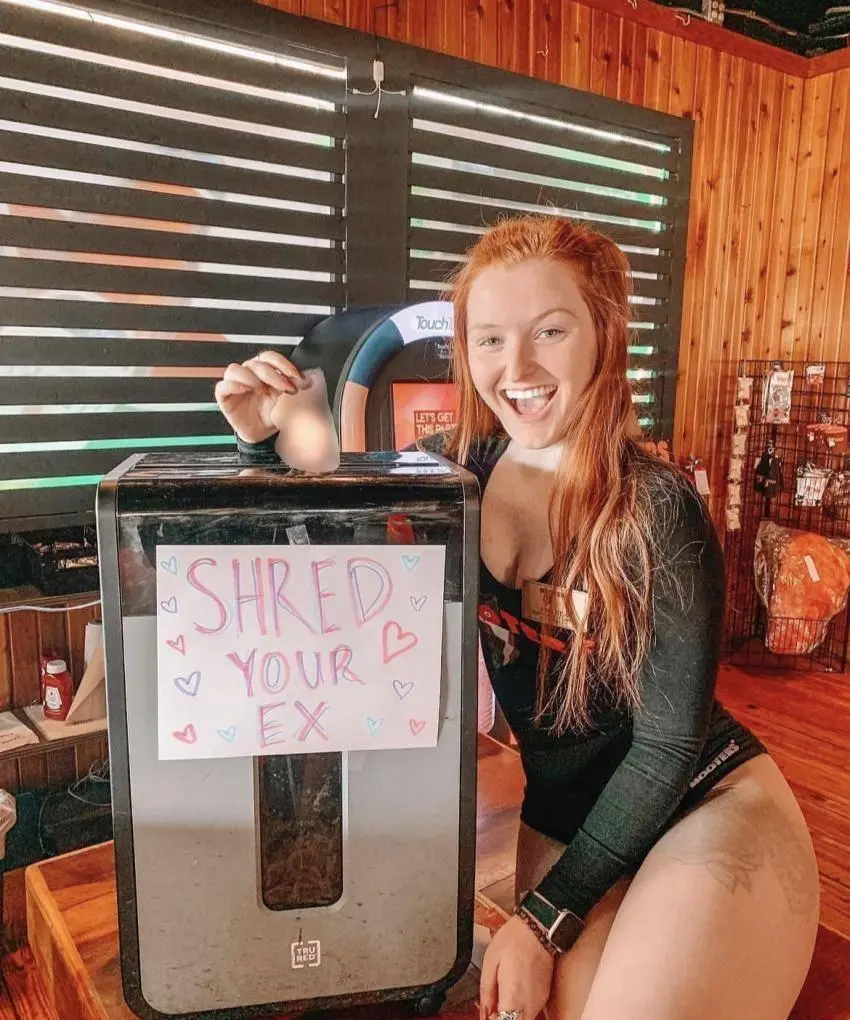 Touch
LET'S GET
THIS PART
SHRED
YOUR
EX
HOOTERS
TRU
RED